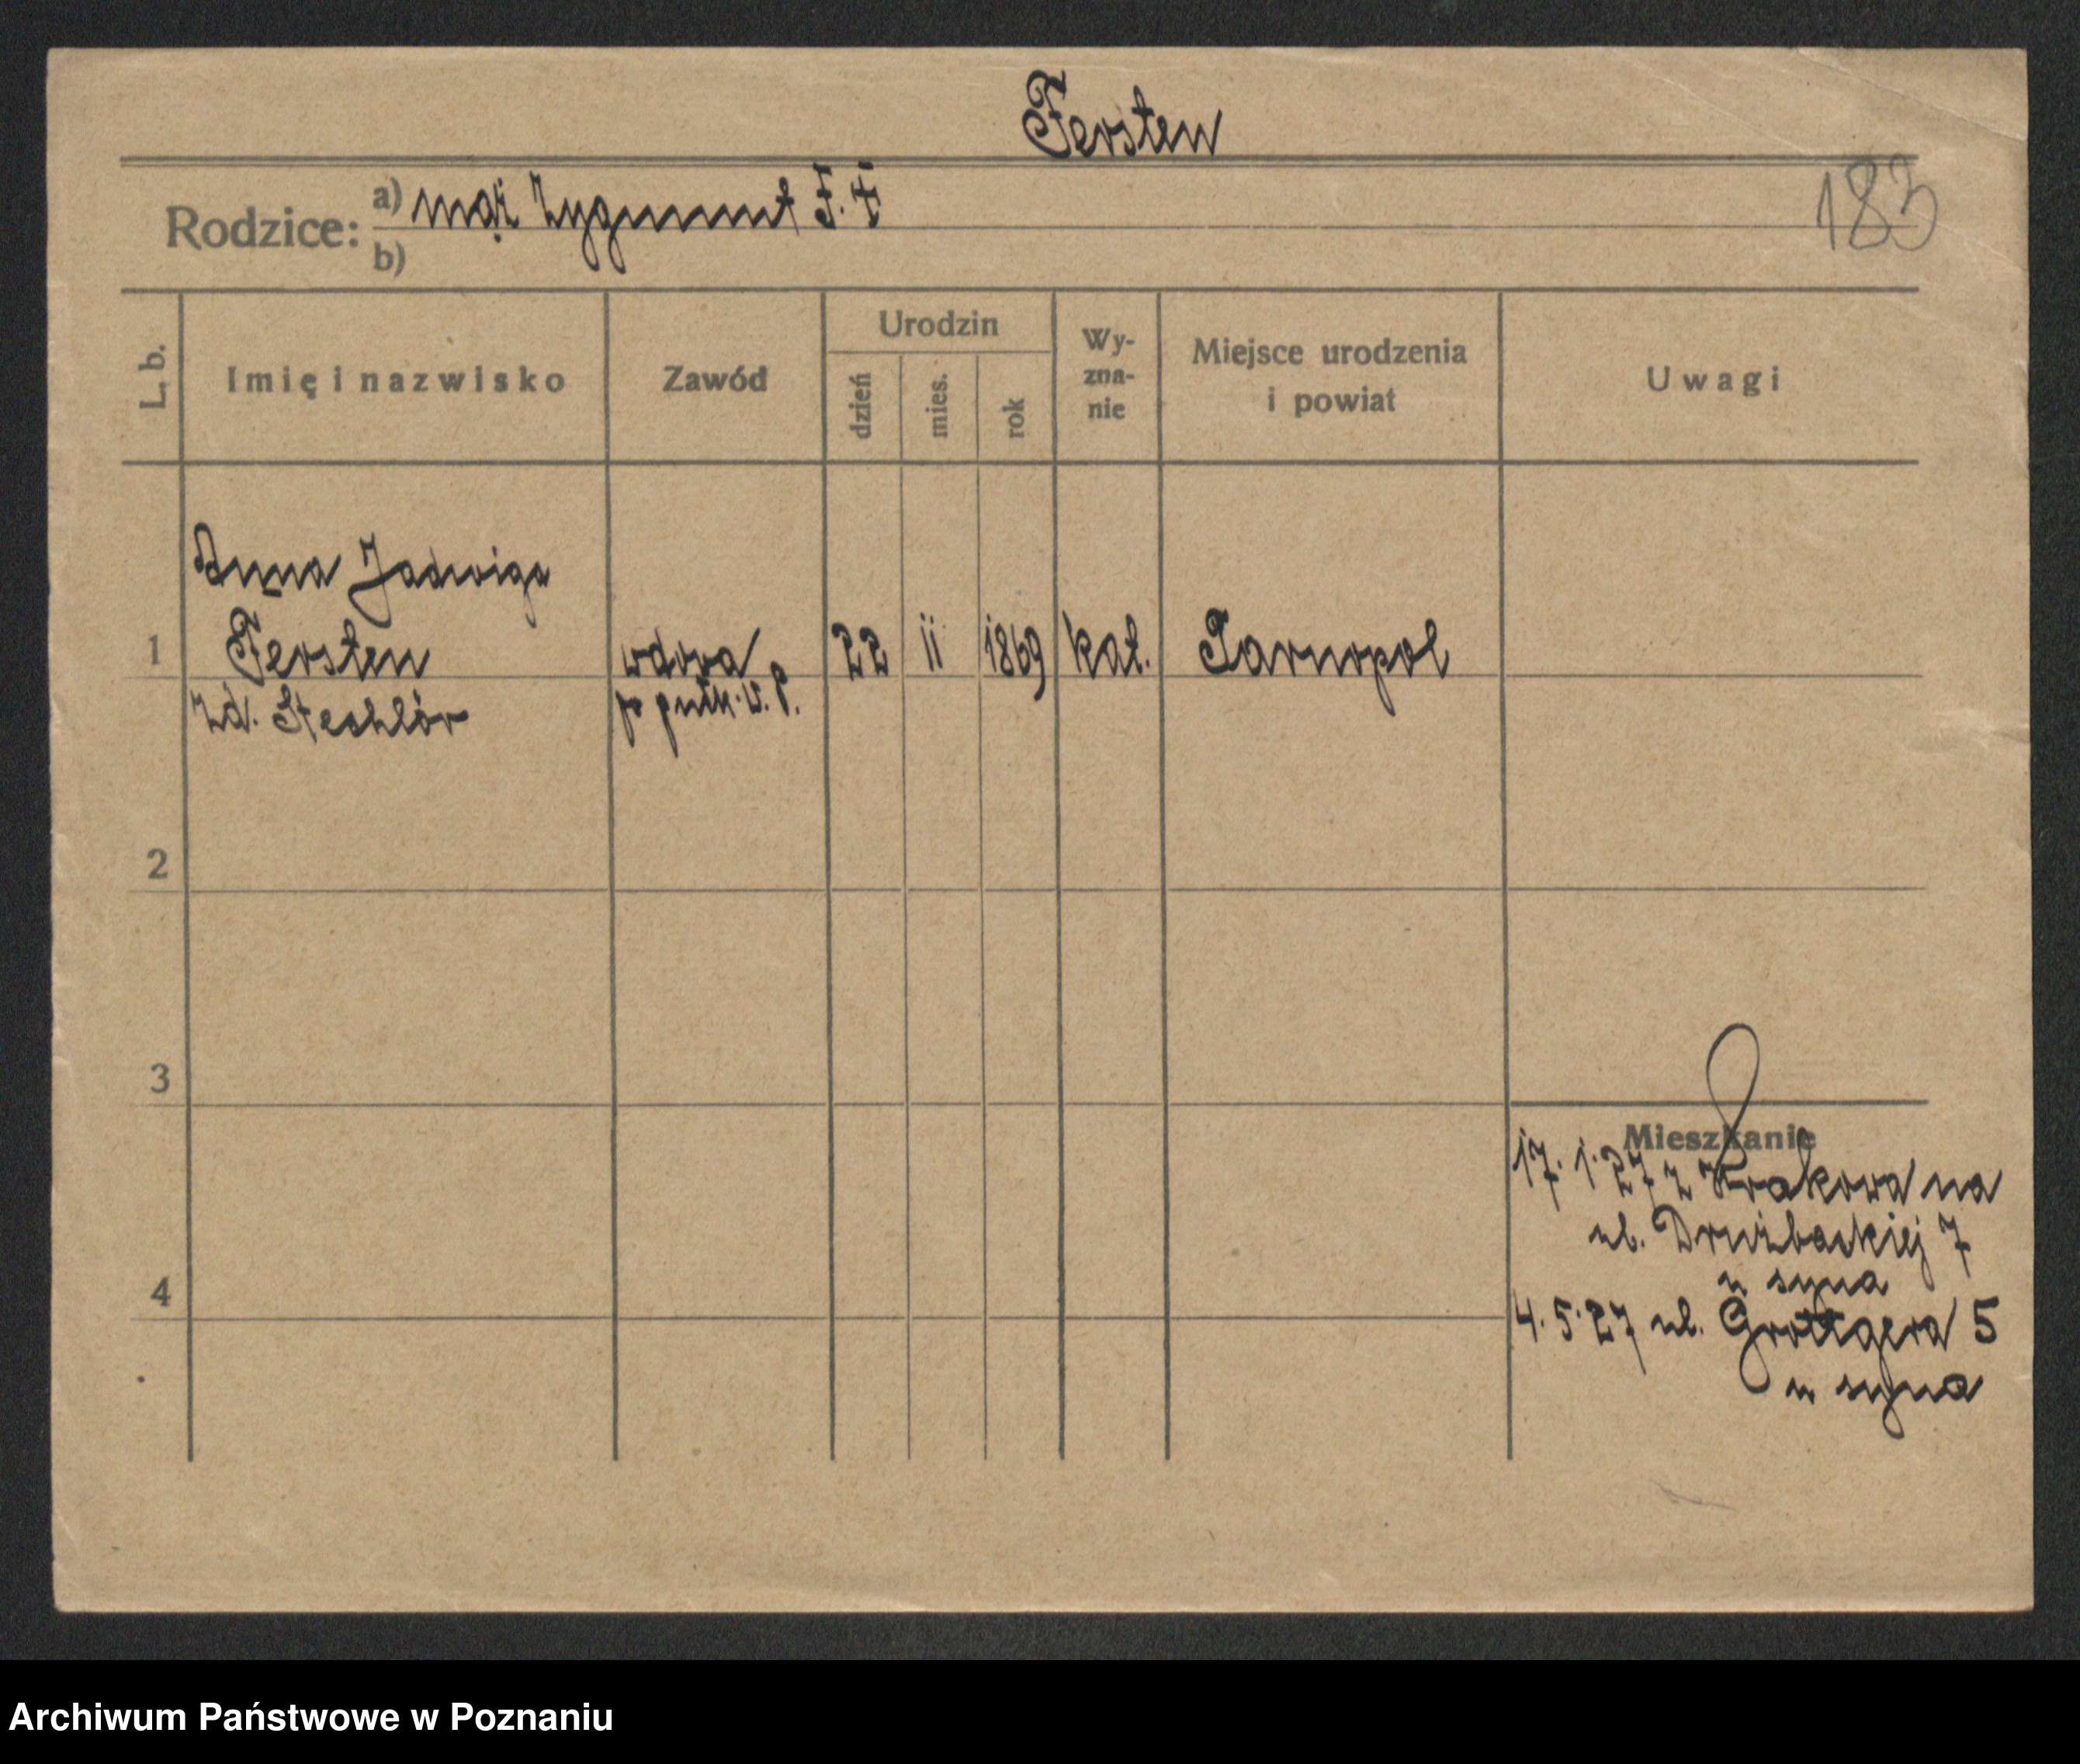 Fersten
183
Rodzice: a) mąż Zygmunt F. †
b)
L. b.
Imię i nazwisko
Zawód
Urodzin
dzień
mies.
rok
Wy-
zna-
nie
Miejsce urodzenia
i powiat
Uwagi
Anna Jadwiga
1 Fersten wdowa 22 ii 1869 kat. Tarnopol
zd. Stechlór po pułk. W. P.
2
3
Mieszkanie
17. 1. 27 z Krakowa na
ul. Drużbackiej 7
u syna
4
4. 5. 27 ul. Grottgera 5
u syna
Archiwum Państwowe w Poznaniu